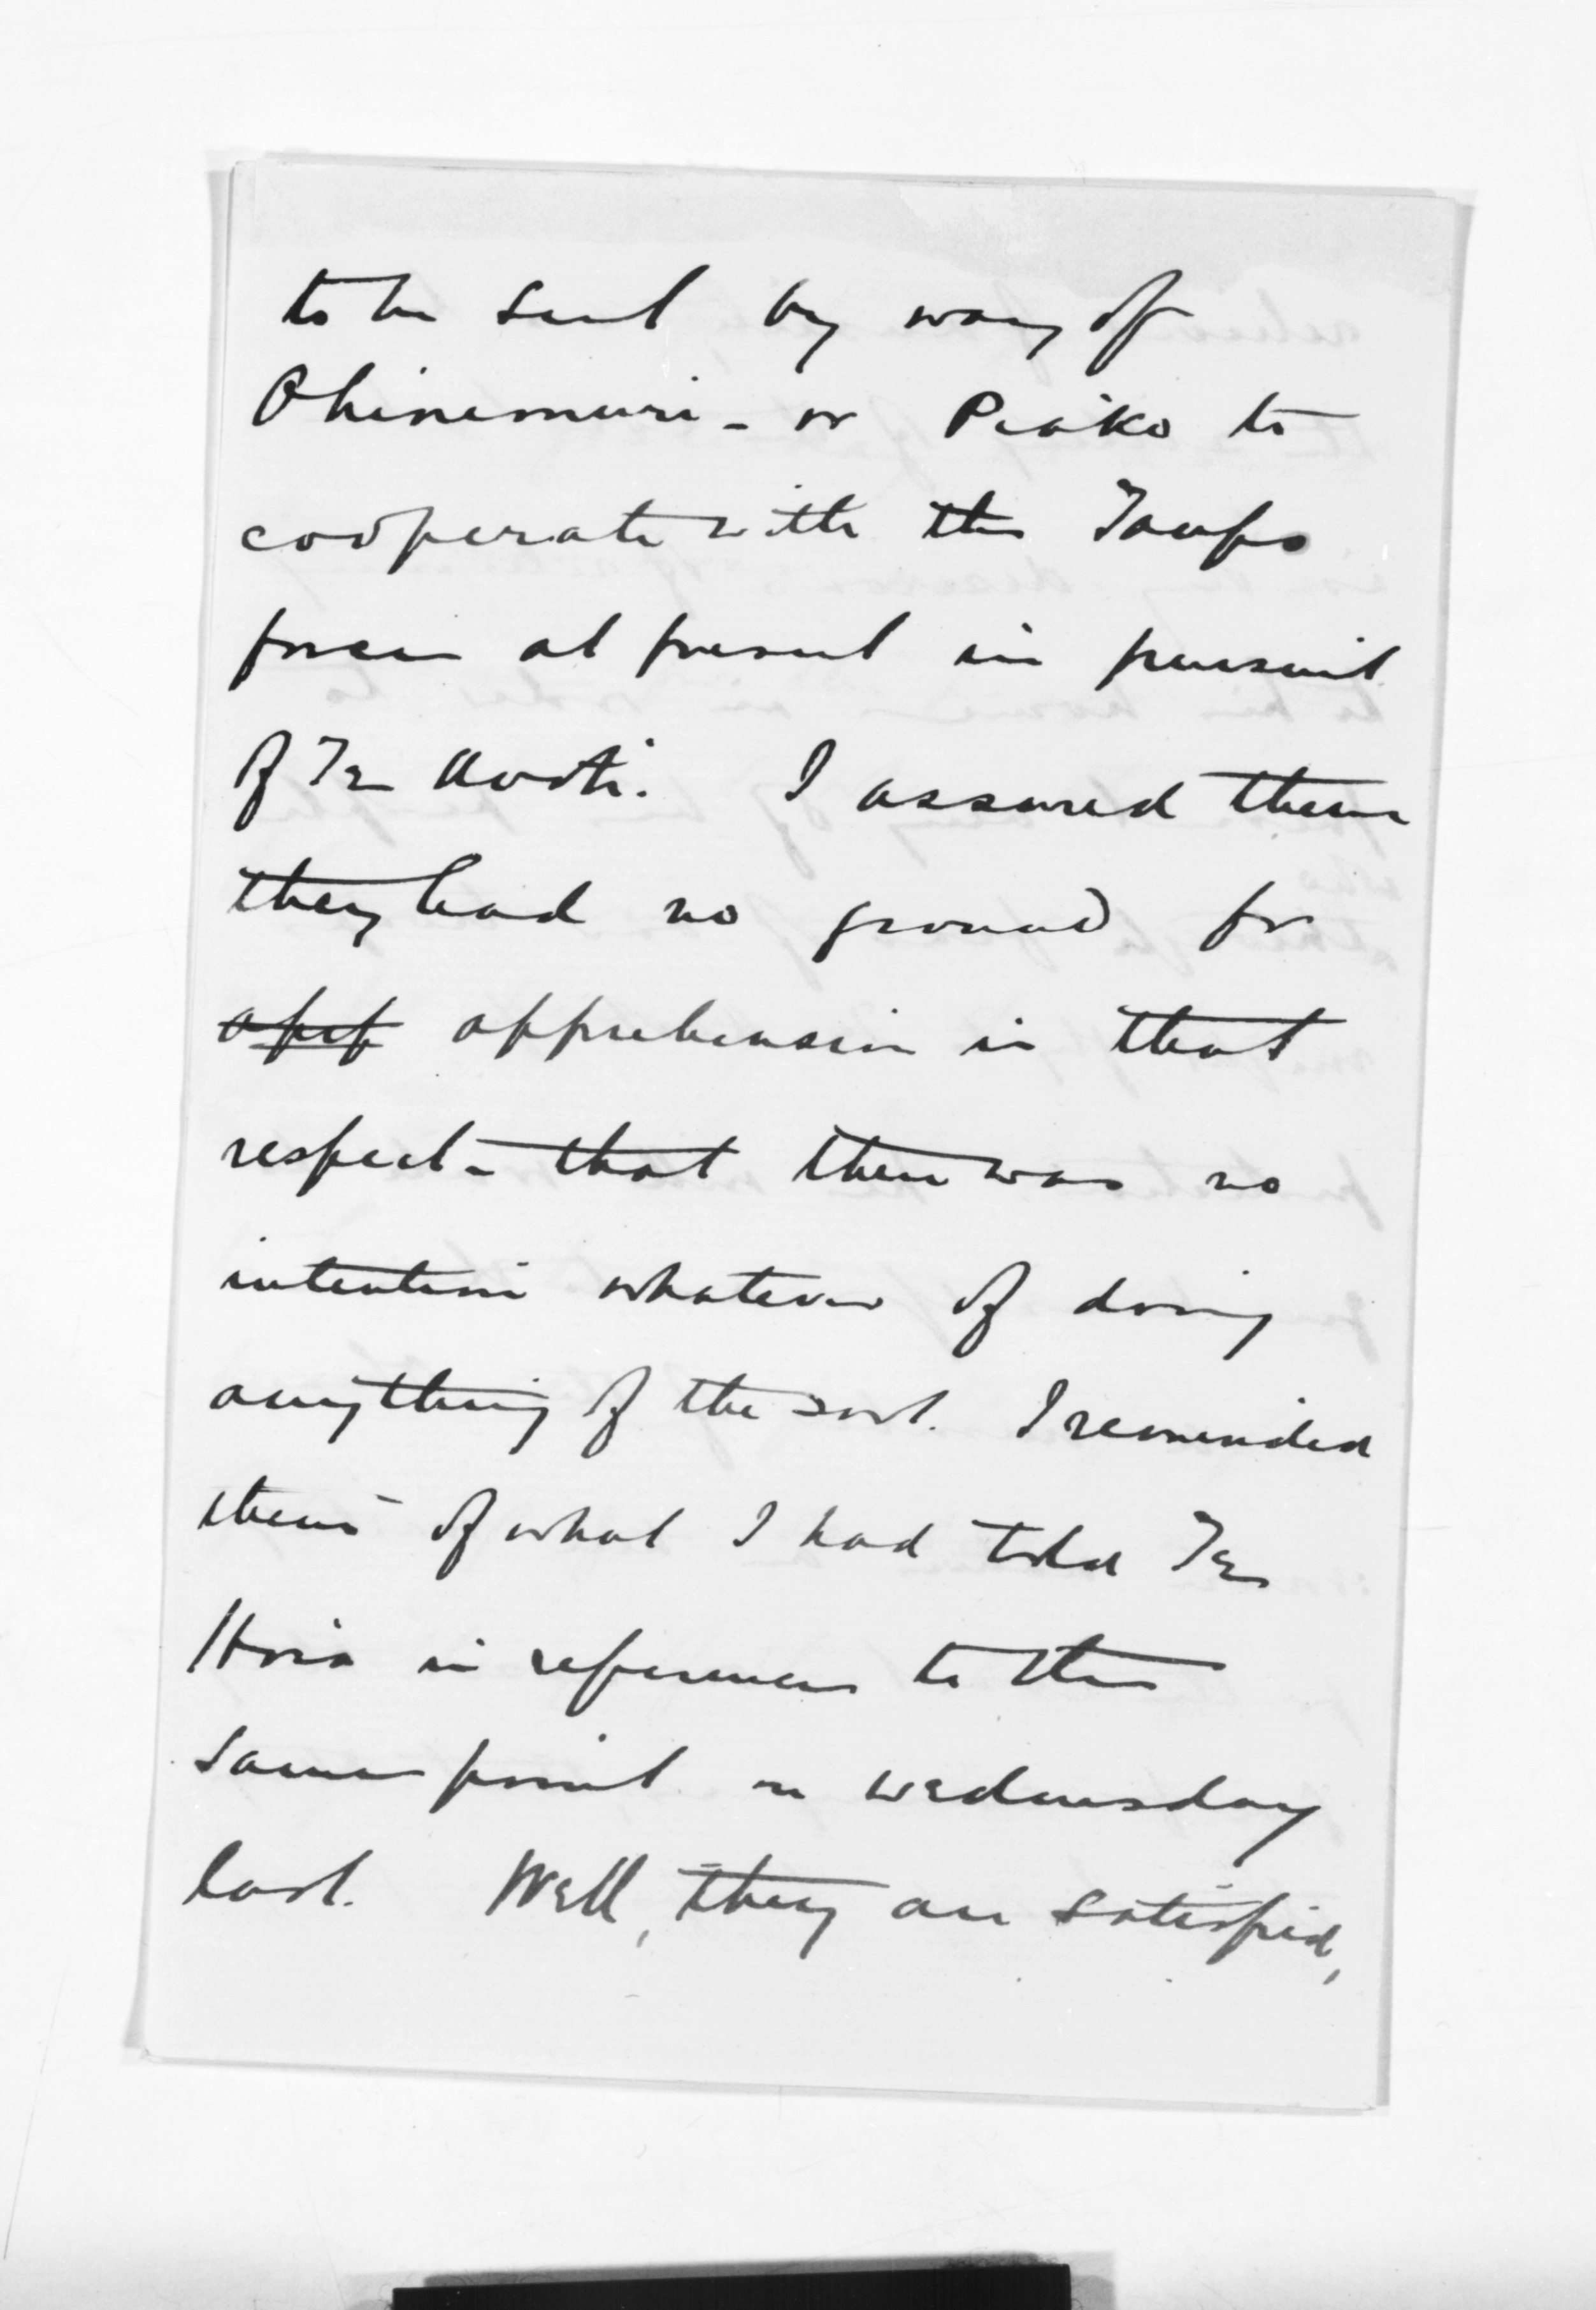 to be sent by way of
Ohinemuri - or Piako to
cooperate with the Taupo
forces at present in pursuit
of Te Kooti. I assured them
they had no ground for
apref apprehension in that
respect - that there was no
intention whatever of doing
anything of the sort. I reminded
them of what I had told Te
Hira in reference to the
same point on Wednesday
last. Well, they are satisfied,